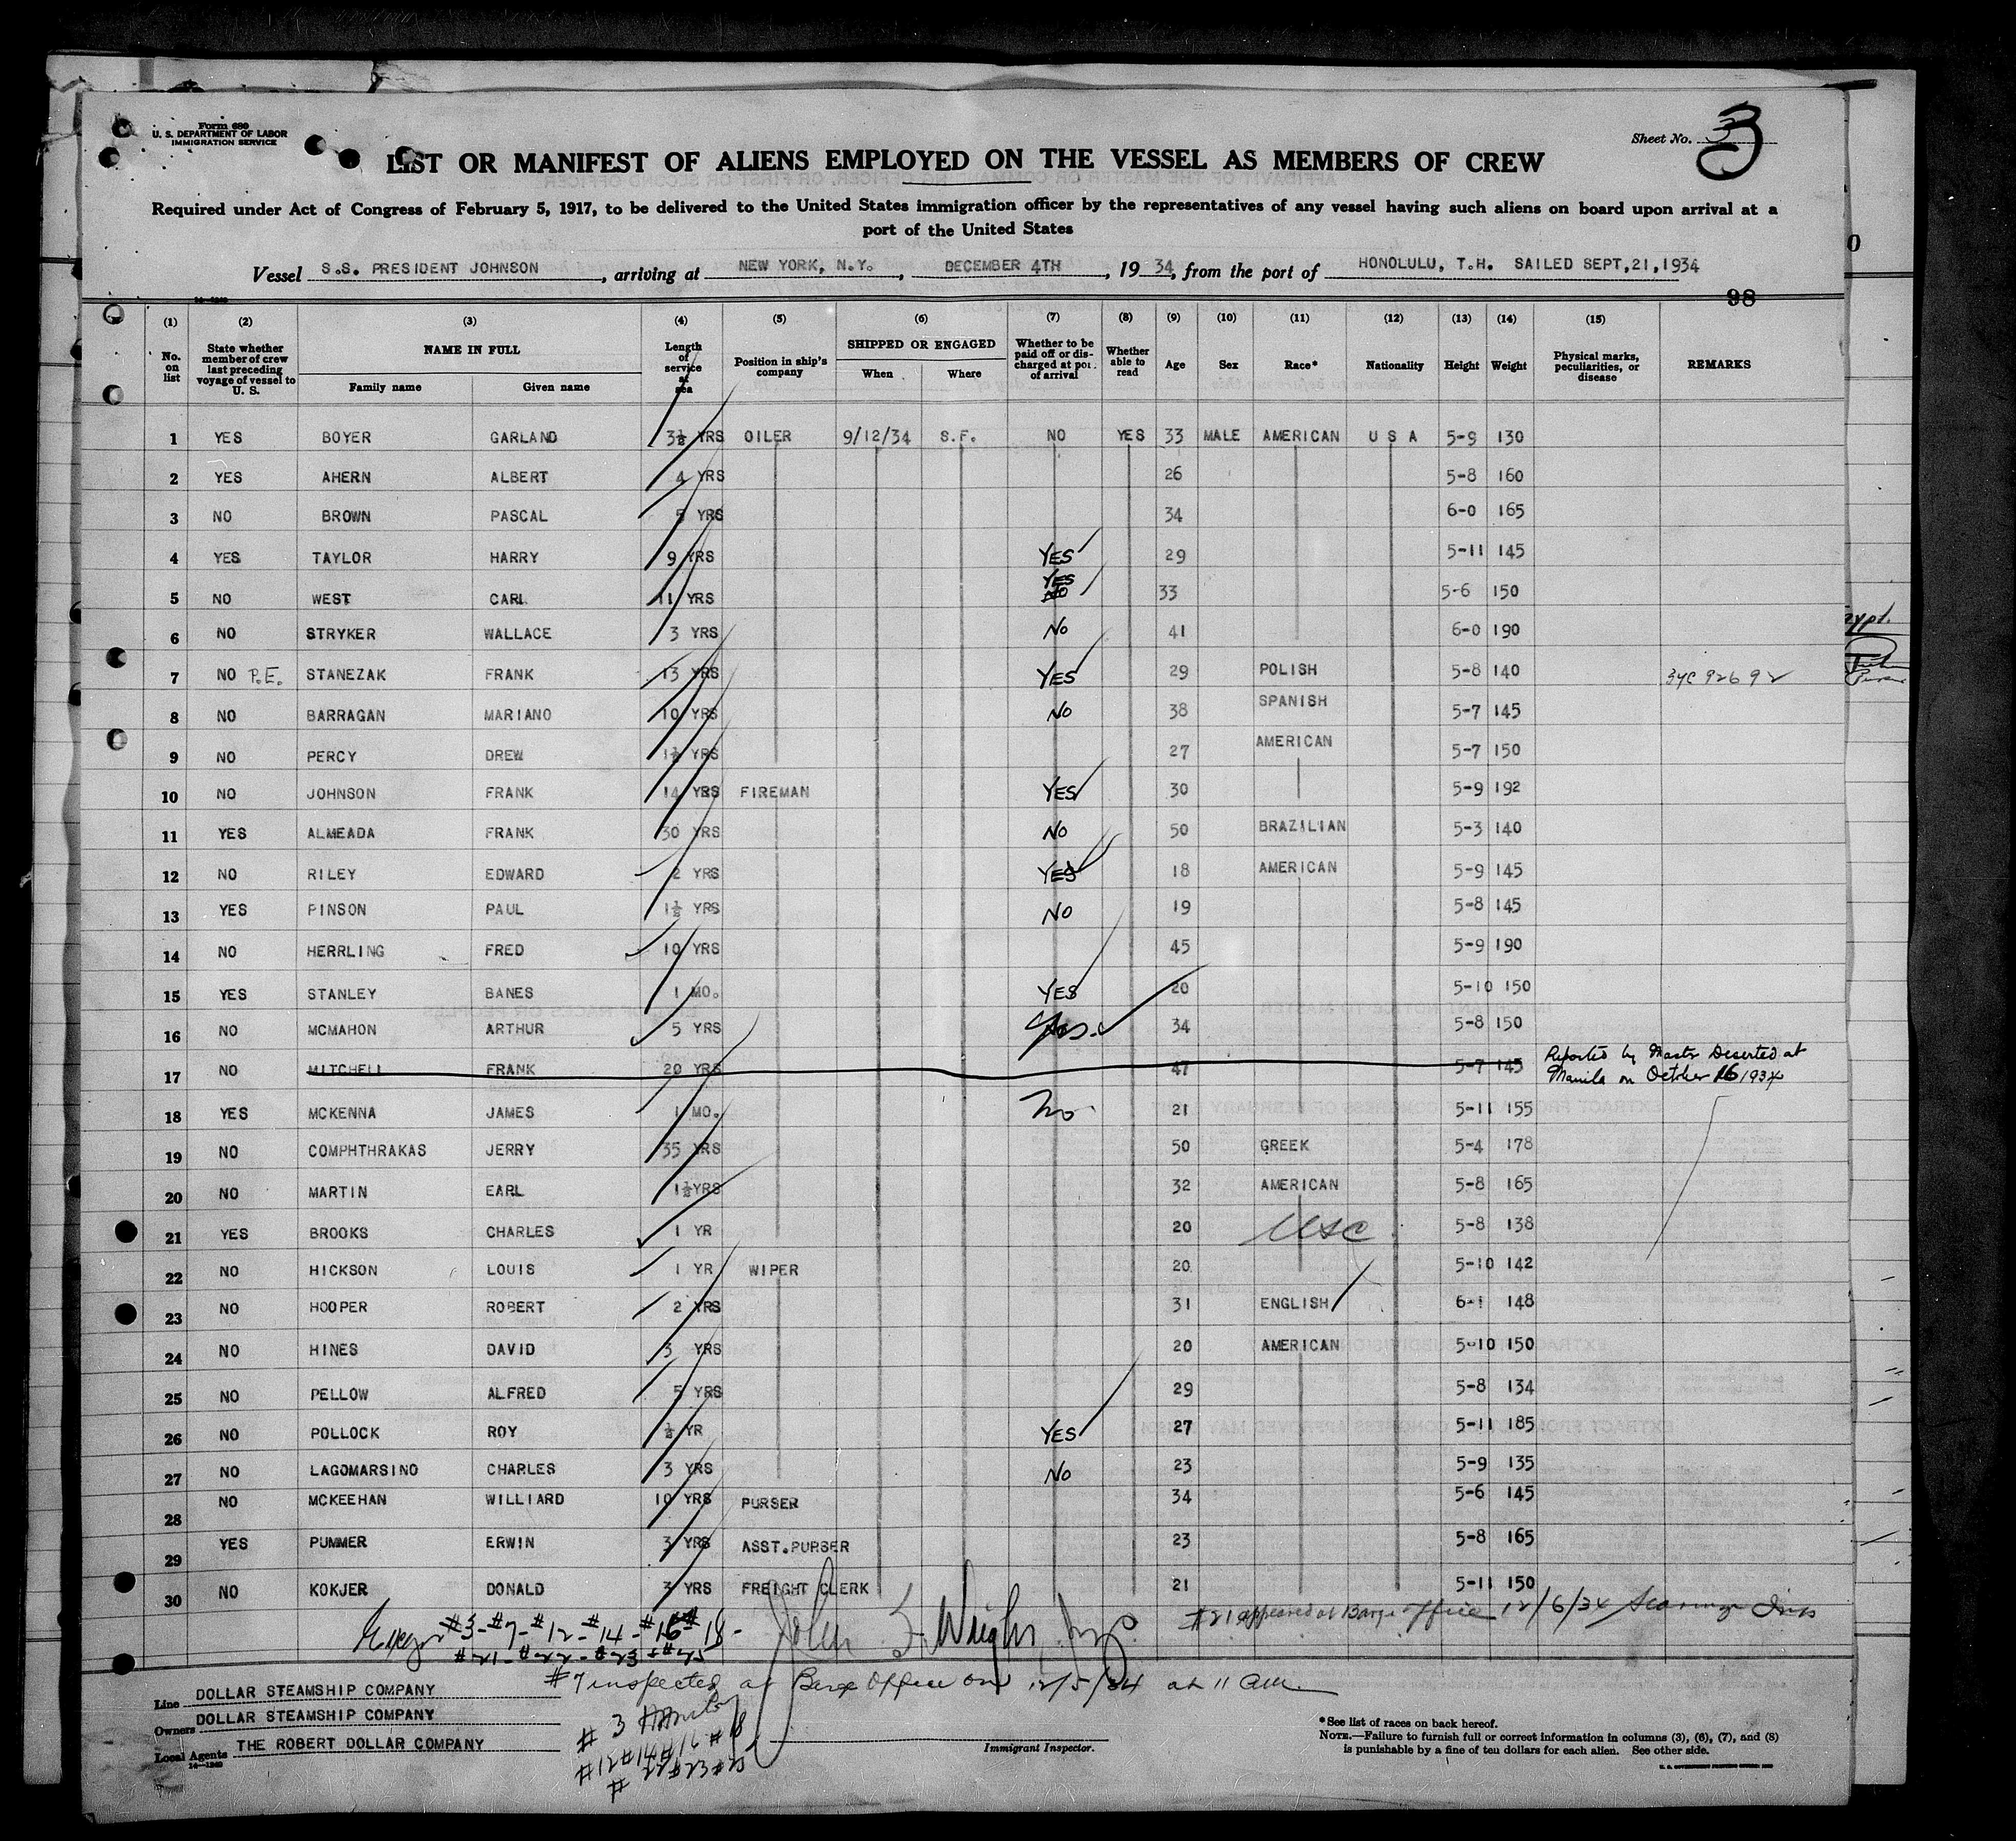 Form 680
U. S. DEPARTMENT OF LABOR
IMMIGRATION SERVICE
Sheet No. 3
LIST OR MANIFEST OF ALIENS EMPLOYED ON THE VESSEL AS MEMBERS OF CREW
Required under Act of Congress of February 5, 1917, to be delivered to the United States immigration officer by the representatives of any vessel having such aliens on board upon arrival at a
port of the United States
Vessel S.S. PRESIDENT JOHNSON, arriving at NEW YORK, N.Y., DECEMBER 4TH, 1934, from the port of HONOLULU, T.H. SAILED SEPT,21,1934
98
(1) (2) (3) (4) (5) (6) (7) (8) (9) (10) (11) (12) (13) (14) (15)
No. on list | State whether member of crew last preceding voyage of vessel to U. S. | NAME IN FULL Family name Given name | Length of service at sea | Position in ship's company | SHIPPED OR ENGAGED When Where | Whether to be paid off or discharged at port of arrival | Whether able to read | Age | Sex | Race* | Nationality | Height | Weight | Physical marks, peculiarities, or disease | REMARKS
1 YES BOYER GARLAND 3½ YRS OILER 9/12/34 S.F. NO YES 33 MALE AMERICAN U S A 5-9 130
2 YES AHERN ALBERT 4 YRS 26 5-8 160
3 NO BROWN PASCAL 5 YRS 34 6-0 165
4 YES TAYLOR HARRY 9 YRS YES 29 5-11 145
5 NO WEST CARL 11 YRS YES NO 33 5-6 150
6 NO STRYKER WALLACE 3 YRS NO 41 6-0 190
7 NO P.E. STANEZAK FRANK 13 YRS YES 29 POLISH 5-8 140
8 NO BARRAGAN MARIANO 10 YRS NO 38 SPANISH 5-7 145
9 NO PERCY DREW 1½ YRS 27 AMERICAN 5-7 150
10 NO JOHNSON FRANK 14 YRS FIREMAN YES 30 5-9 192
11 YES ALMEADA FRANK 30 YRS NO 50 BRAZILIAN 5-3 140
12 NO RILEY EDWARD 2 YRS YES 18 AMERICAN 5-9 145
13 YES PINSON PAUL 1½ YRS NO 19 5-8 145
14 NO HERRLING FRED 10 YRS 45 5-9 190
15 YES STANLEY BANES 1 MO. YES 20 5-10 150
16 NO MCMAHON ARTHUR 5 YRS Yes. 34 5-8 150
17 NO MITCHELL FRANK 20 YRS 47 5-7 145 Reported by Master Deserted at
Manila on October 16 1934
18 YES MCKENNA JAMES 1 MO. No 21 5-11 155
19 NO COMPHTHRAKAS JERRY 35 YRS 50 GREEK 5-4 178
20 NO MARTIN EARL 1½ YRS 32 AMERICAN 5-8 165
21 YES BROOKS CHARLES 1 YR 20 USC 5-8 138
22 NO HICKSON LOUIS 1 YR WIPER 20 5-10 142
23 NO HOOPER ROBERT 2 YRS 31 ENGLISH 6-1 148
24 NO HINES DAVID 3 YRS 20 AMERICAN 5-10 150
25 NO PELLOW ALFRED 5 YRS 29 5-8 134
26 NO POLLOCK ROY ½ YR YES 27 5-11 185
27 NO LAGOMARSINO CHARLES 3 YRS NO 23 5-9 135
28 NO MCKEEHAN WILLIARD 10 YRS PURSER 34 5-6 145
29 YES PUMMER ERWIN 3 YRS ASST.PURSER 23 5-8 165
30 NO KOKJER DONALD 3 YRS FREIGHT CLERK 21 5-11 150
#3-#7-#12-#14-#16-#18-
#21-#22-#23-#25
#21 appeared at Barge Office 12/6/34
#7 inspected at Barge Office on 12/5/34 at 11 am.
Line DOLLAR STEAMSHIP COMPANY
Owners DOLLAR STEAMSHIP COMPANY
Local Agents THE ROBERT DOLLAR COMPANY
Immigrant Inspector.
*See list of races on back hereof.
NOTE.—Failure to furnish full or correct information in columns (3), (6), (7), and (8)
is punishable by a fine of ten dollars for each alien. See other side.